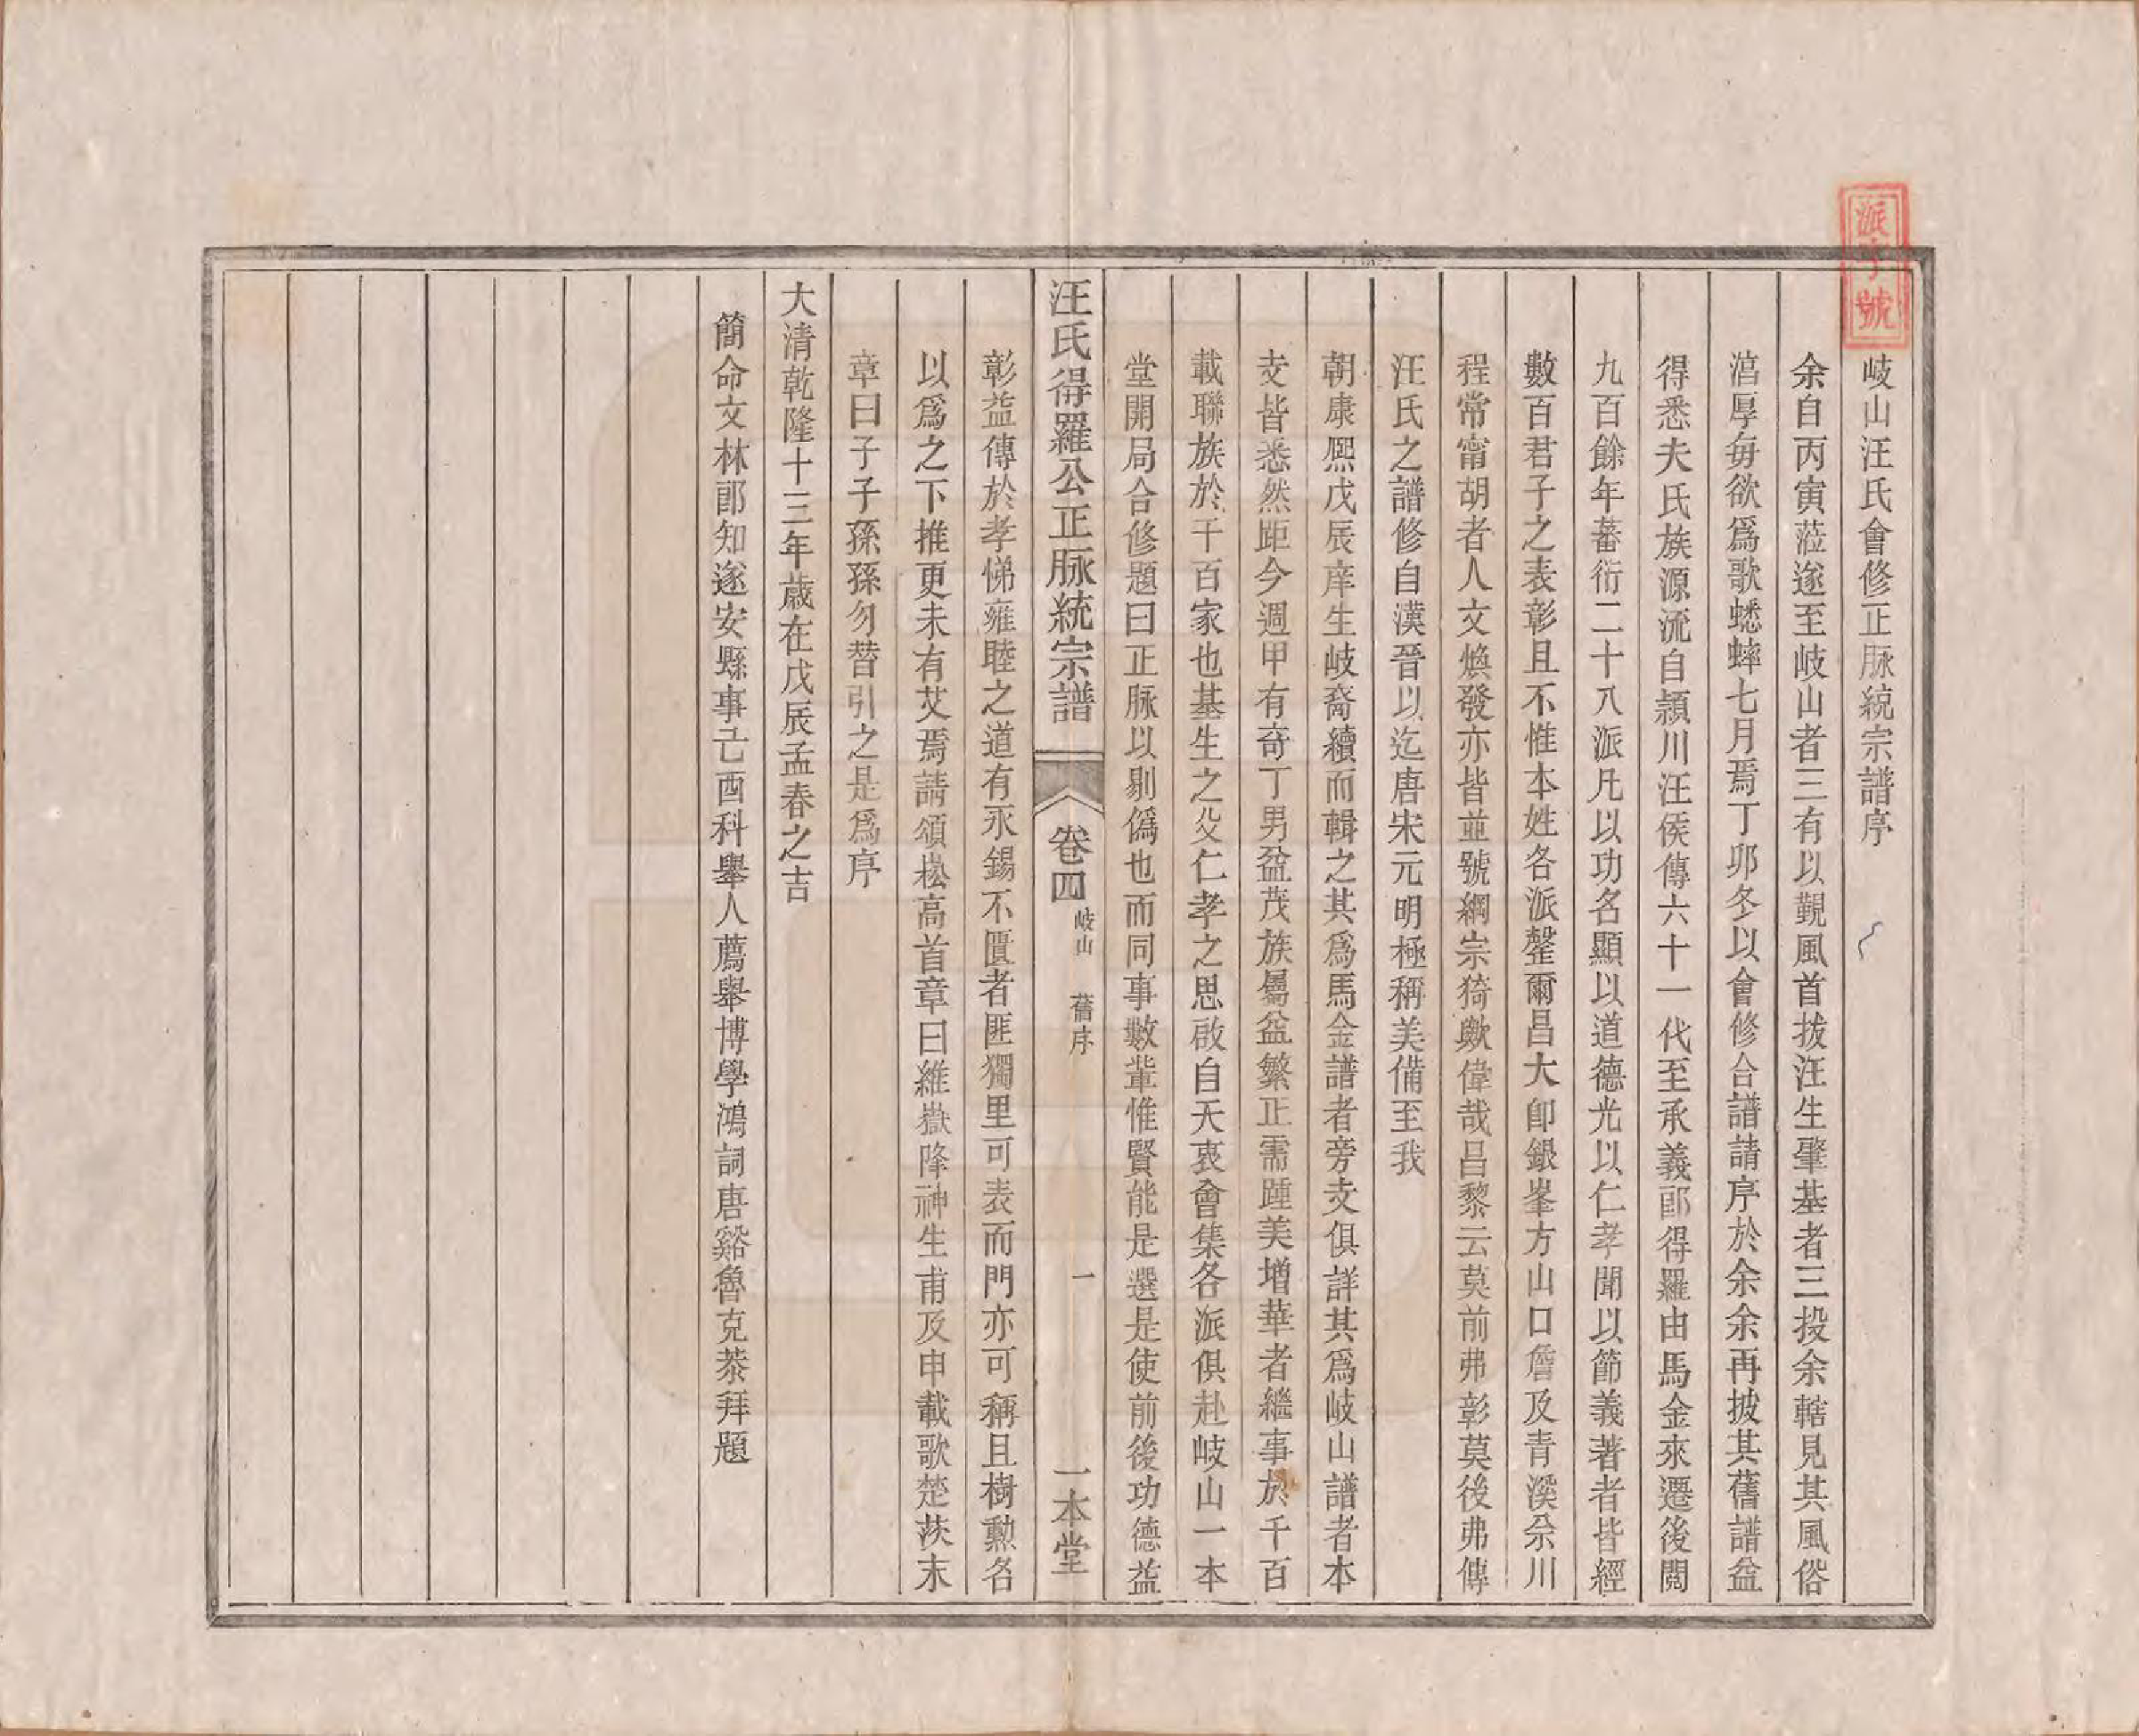 派字號
岐山汪氏會修正脉統宗譜序
余自丙寅蒞遂至岐山者三有以觀風首拔汪生肇基者三投余轄見其風俗
湻厚每欲爲歌蟋蟀七月焉丁夘冬以會修合譜請序於余余再披其舊譜益
得悉夫氏族源流自潁川汪侯傳六十一代至承義郎得羅由馬金來遷後閲
九百餘年蕃衍二十八派凡以功名顯以道德光以仁孝聞以節義著者皆經
數百君子之表彰且不惟本姓各派罄爾昌大卽銀峯方山口詹及青溪余川
程常甯胡者人文煥發亦皆並號綱宗猗歟偉哉昌黎云莫前弗彰莫後弗傳
汪氏之譜修自漢晉以迄唐宋元明極稱美備至我
朝康熙戊辰庠生岐裔續而輯之其爲馬金譜者旁支俱詳其爲岐山譜者本
支皆悉然距今週甲有奇丁男益茂族屬益繁正需踵美增華者繼事於千百
載聯族於千百家也基生之父仁孝之思啟自天衷會集各派俱赴岐山一本
堂開局合修題曰正脉以剔僞也而同事數輩惟賢能是選是使前後功德益
汪氏得羅公正脉統宗譜 卷四 岐山 舊序 一 一本堂
彰益傳於孝悌雍睦之道有永錫不匱者匪獨里可表而門亦可稱且樹勲名
以爲之下推更未有艾焉請頌崧高首章曰維嶽降神生甫及申載歌楚茨末
章曰子子孫孫勿替引之是爲序
大清乾隆十三年歲在戊辰孟春之吉
簡命文林郎知遂安縣事己酉科舉人薦舉博學鴻詞唐谿魯克恭拜題